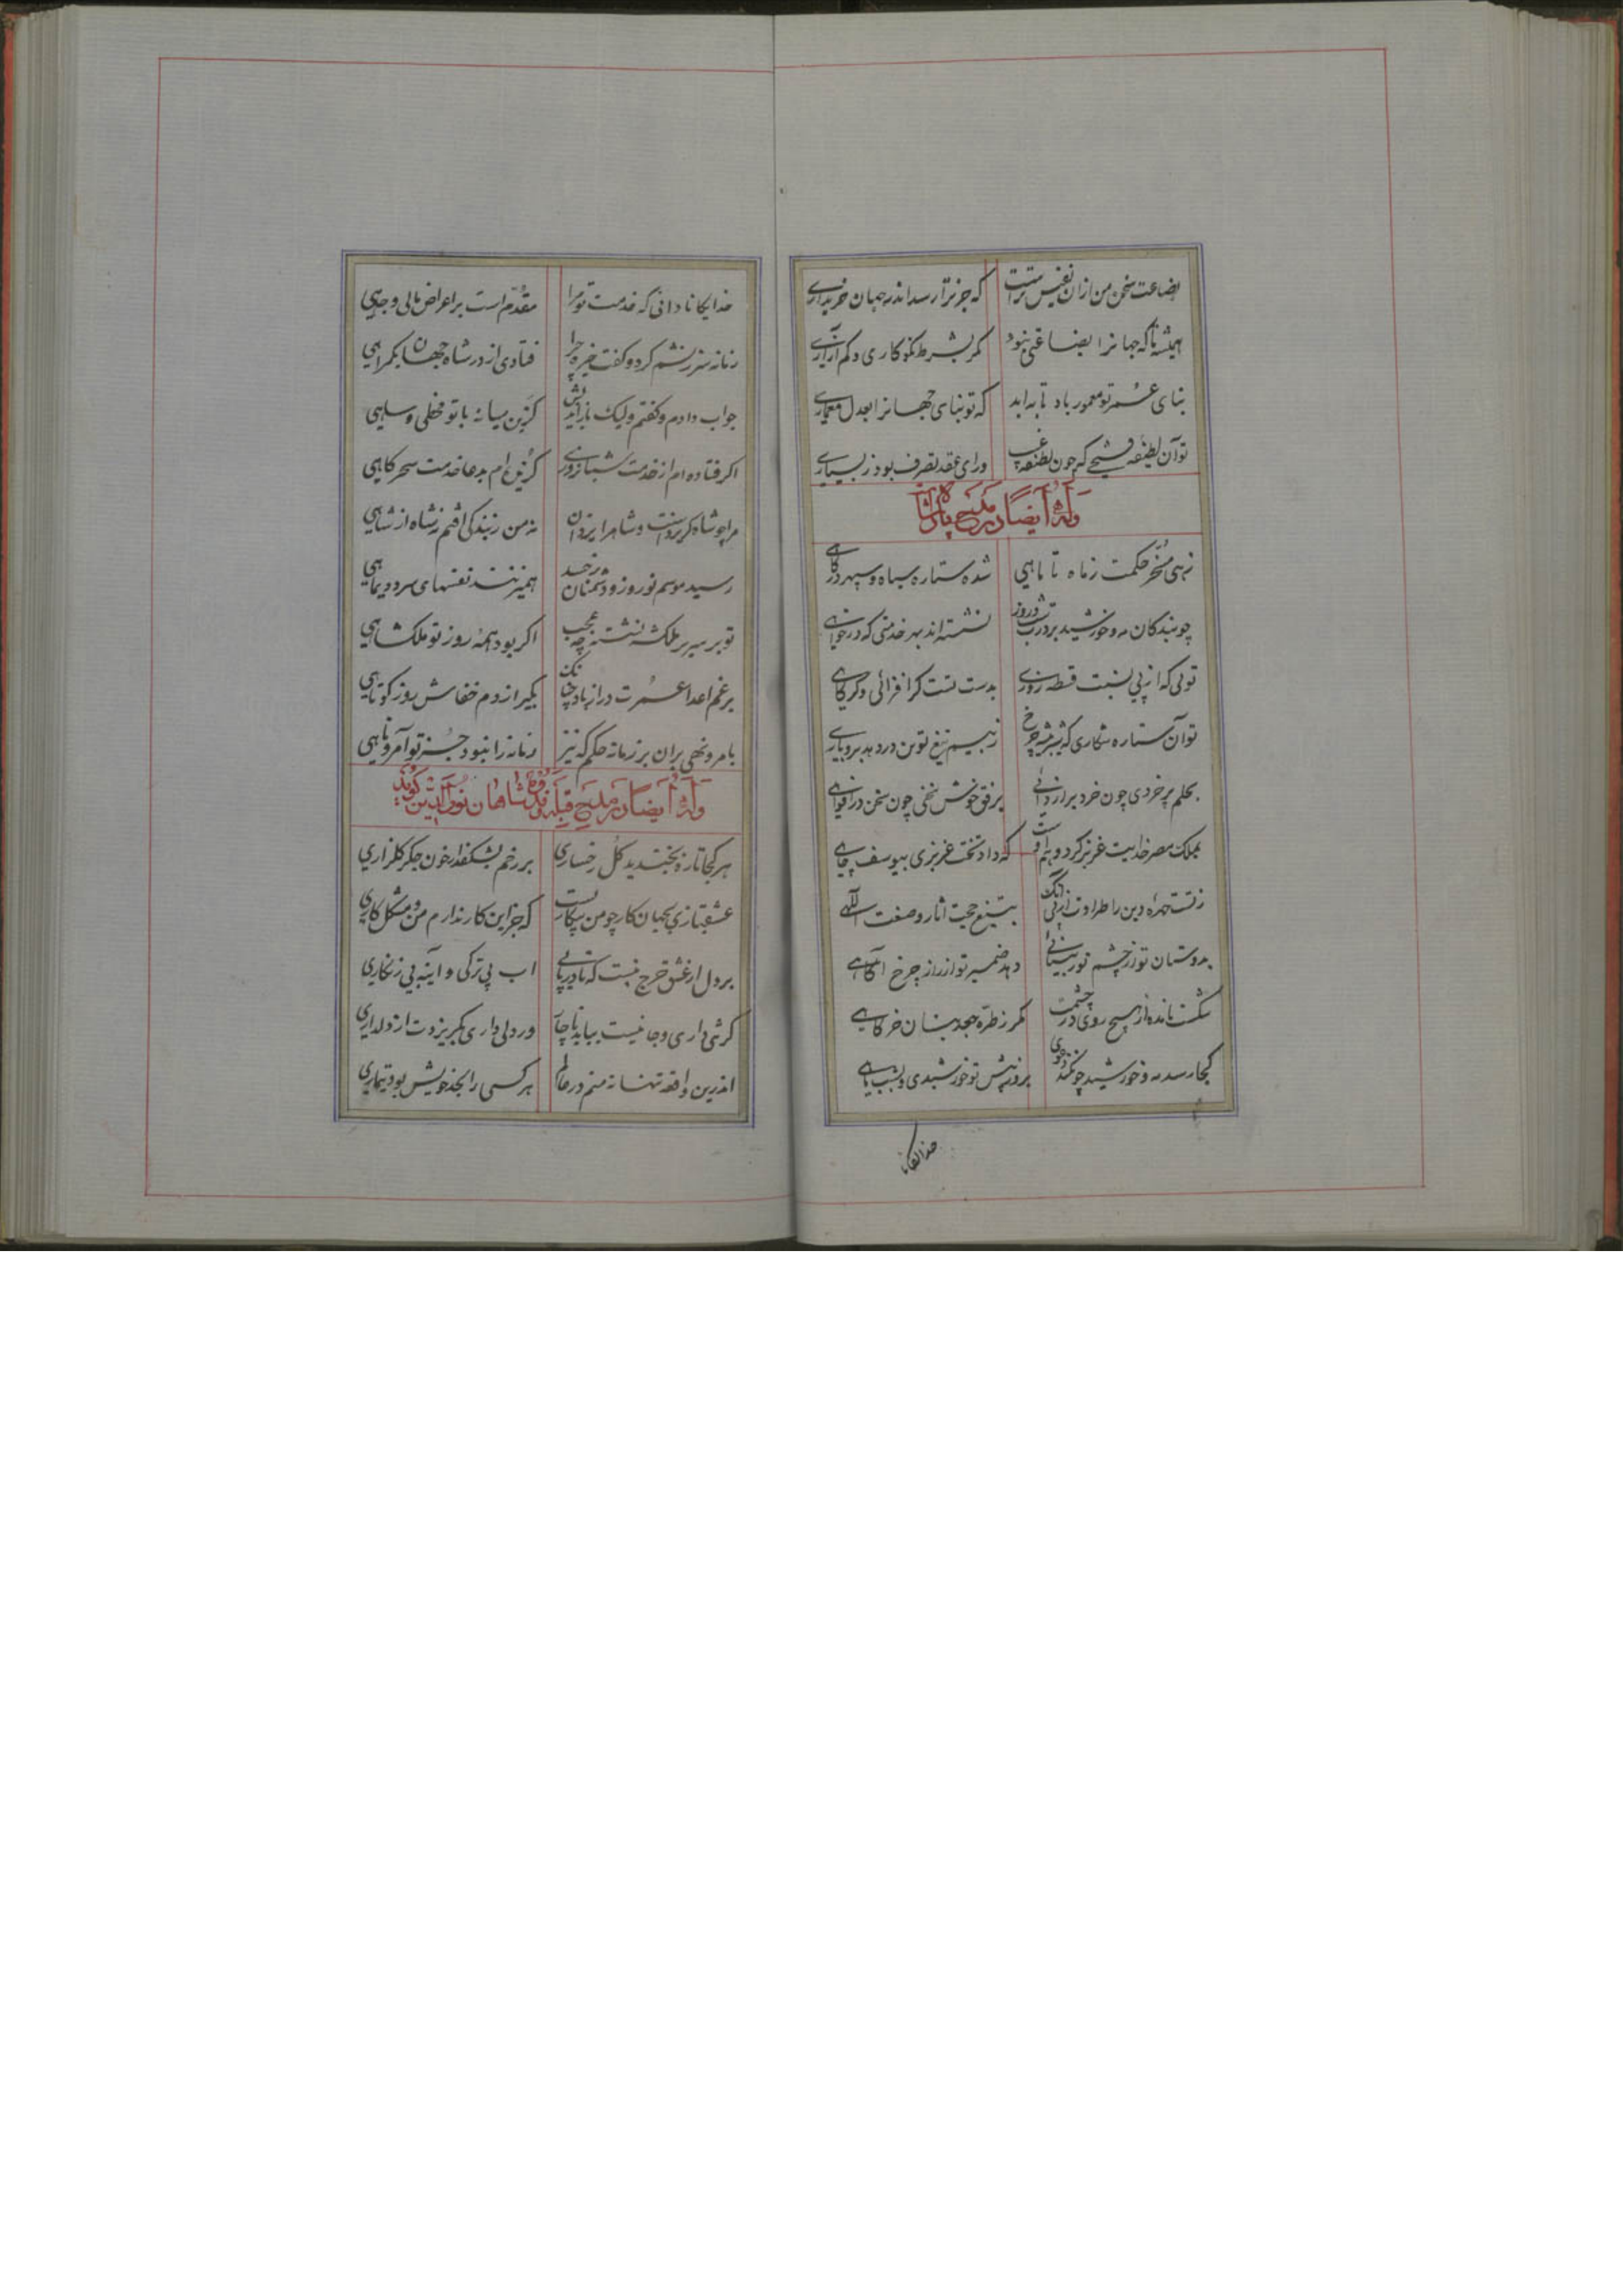 بضاعت سخن من ازان نفیس ترست که جز ترا رسد اندر جهان خریداری
همیشه تا که جهانرا بضاعتی نبود مکر بشرط نکوکاری و کم آزاری
بنای عمر تو معمور باد تا به ابد که تو بنای جهانرا بعدل معماری
تو آن لطیفه که چون لطیفه غیب ورای عقد تصرف بود ز بسیاری
وله ایضا در مدح پادشاه
زهی مسخر حکمت ز ماه تا ماهی شده ستاره سپاه و سپهر درکاهی
چو بندکان مه و خورشید بر درت شب و روز نشسته اند بهر خدمتی که درخواهی
توئی که از پی نسبت قسطه روزی بدست تست کر افزائی و کر کاهی
تو آن ستاره شکاری که شیر چرخ ز بیم تیغ تو تن دردهد بروباهی
بحلم پر خردی چون خرد برازدانی برفق خوش سخنی چون سخن در افواهی
بملک مصر خدایت عزیز کرد و هم اوست که داد تخت عزیزی بیوسف چاهی
ز تست چهره دین را طراوت ازپی آنک بتیغ حجت اثار و صنعت اللهی
بدوستان تو از چشم نور بینائی دهد ضمیر تو از راز چرخ آکاهی
شکست نامده از هیچ روی در چشمت مکر ز طره جعد بتان خرکاهی
کجا رسد مه و خورشید چونکند دعوی بروز پیش تو خورشیدی و بشب ماهی
خدایکانا
خدایکانا دانی که خدمت تو مرا مقدم است بر اعراض مالی و جاهی
زمانه سرزنشم کرد و کفت خیره چرا فتادی از در شاه جهان بکمراهی
جواب دادم و کفتم ولیک باز اندیش کزین میانه با تو مخطی و ساهی
اکر فتاده ام از خدمت شبانروزی کزیده ام بدعا خدمت سحرکاهی
مرا چو شاه کزیداست و شاه را یزدان نه من ز بندکی افتم نه شاه از شاهی
رسید موسم نوروز و دشمنان ز حسد همیزنند نفسهای سرد دیماهی
تو بر سریر ملکشه نشسته چه عجب اکر بود همه روز تو ملکشاهی
برغم اعدا عمرت دراز باد چنانک بکیر از دم خفاش روز کوتاهی
بامر و نهی بران بر زمانه حکم که نیز زمانه را نبود جز تو آمر و ناهی
وله ایضا در مدح قبله شاهان نورالدین کوید
هر کجا تازه بخندید کل رخساری بر رخم بشکفد از خون جکر کلزاری
عشقبازی بجهان کار چو من بیکارست که جز این کار ندارم من و مشکل کاری
بر دل از عشق حرج نیست که تا دریابی اب بی ترکی و آینه بی زنکاری
کر تنی داری و جا نیست بباید ناچار ور دلی داری مکریزدت از دلداری
اندرین واقعه تنها نه منم در عالم هر کسی را بحد خویش بود تیماری